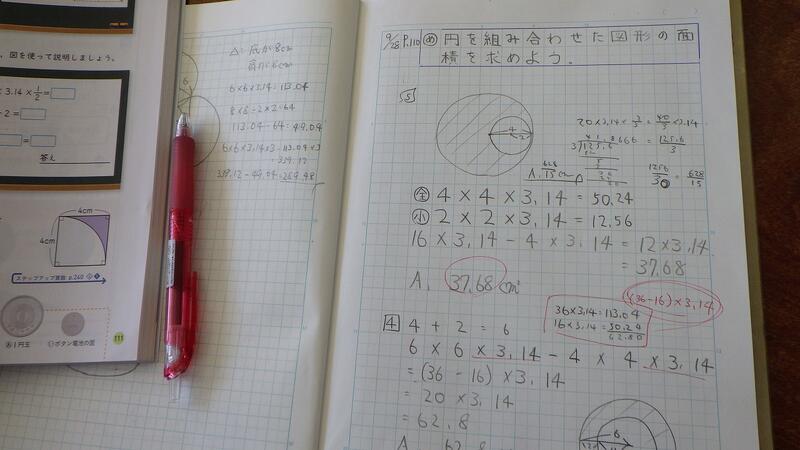 、図を使って説明しましょう。
3.14×1/2=
÷2=
=
答え
4cm
4cm
ステップアップ算数 p.260
㋐1円玉
㋑ボタン電池の面
111
6
△:底が8cm
高が8cm
6×6×3.14=113.04
8×8÷2×2=64
113.04-64=49.04
6×6×3.14×3=113.04×3
=339.12
339.12-49.04=
9/28 P.110 め 円を組み合わせた図形の面
積を求めよう。
5
4
2
20×3.14×2/3=40/3×3.14
=125.6/3
1256/30=628/15
全 4×4×3,14=50.24
小 2×2×3,14=12.56
16×3,14-4×3,14=12×3,14
=37.68
A. 37,68cm²
(36-16)×3,14
36×3.14=113.04
16×3.14=50.24
62.80
4 4+2=6
6×6×3,14-4×4×3,14
=(36-16)×3,14
=20×3,14
=62,8
A 62.8
6